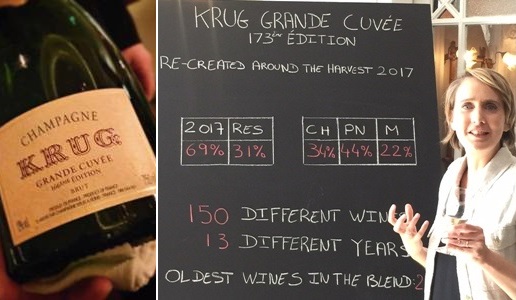 CHAMPAGNE
KRUG
GRANDE CUVÉE
ÉDITION
BRUT
KRUG GRANDE CUVÉE
173ème ÉDITION
RE-CREATED AROUND THE HARVEST 2017
2017 RES
69% 31%
CH PN M
34% 44% 22%
150 DIFFERENT WINES
13 DIFFERENT YEARS
OLDEST WINES IN THE BLEND: 2